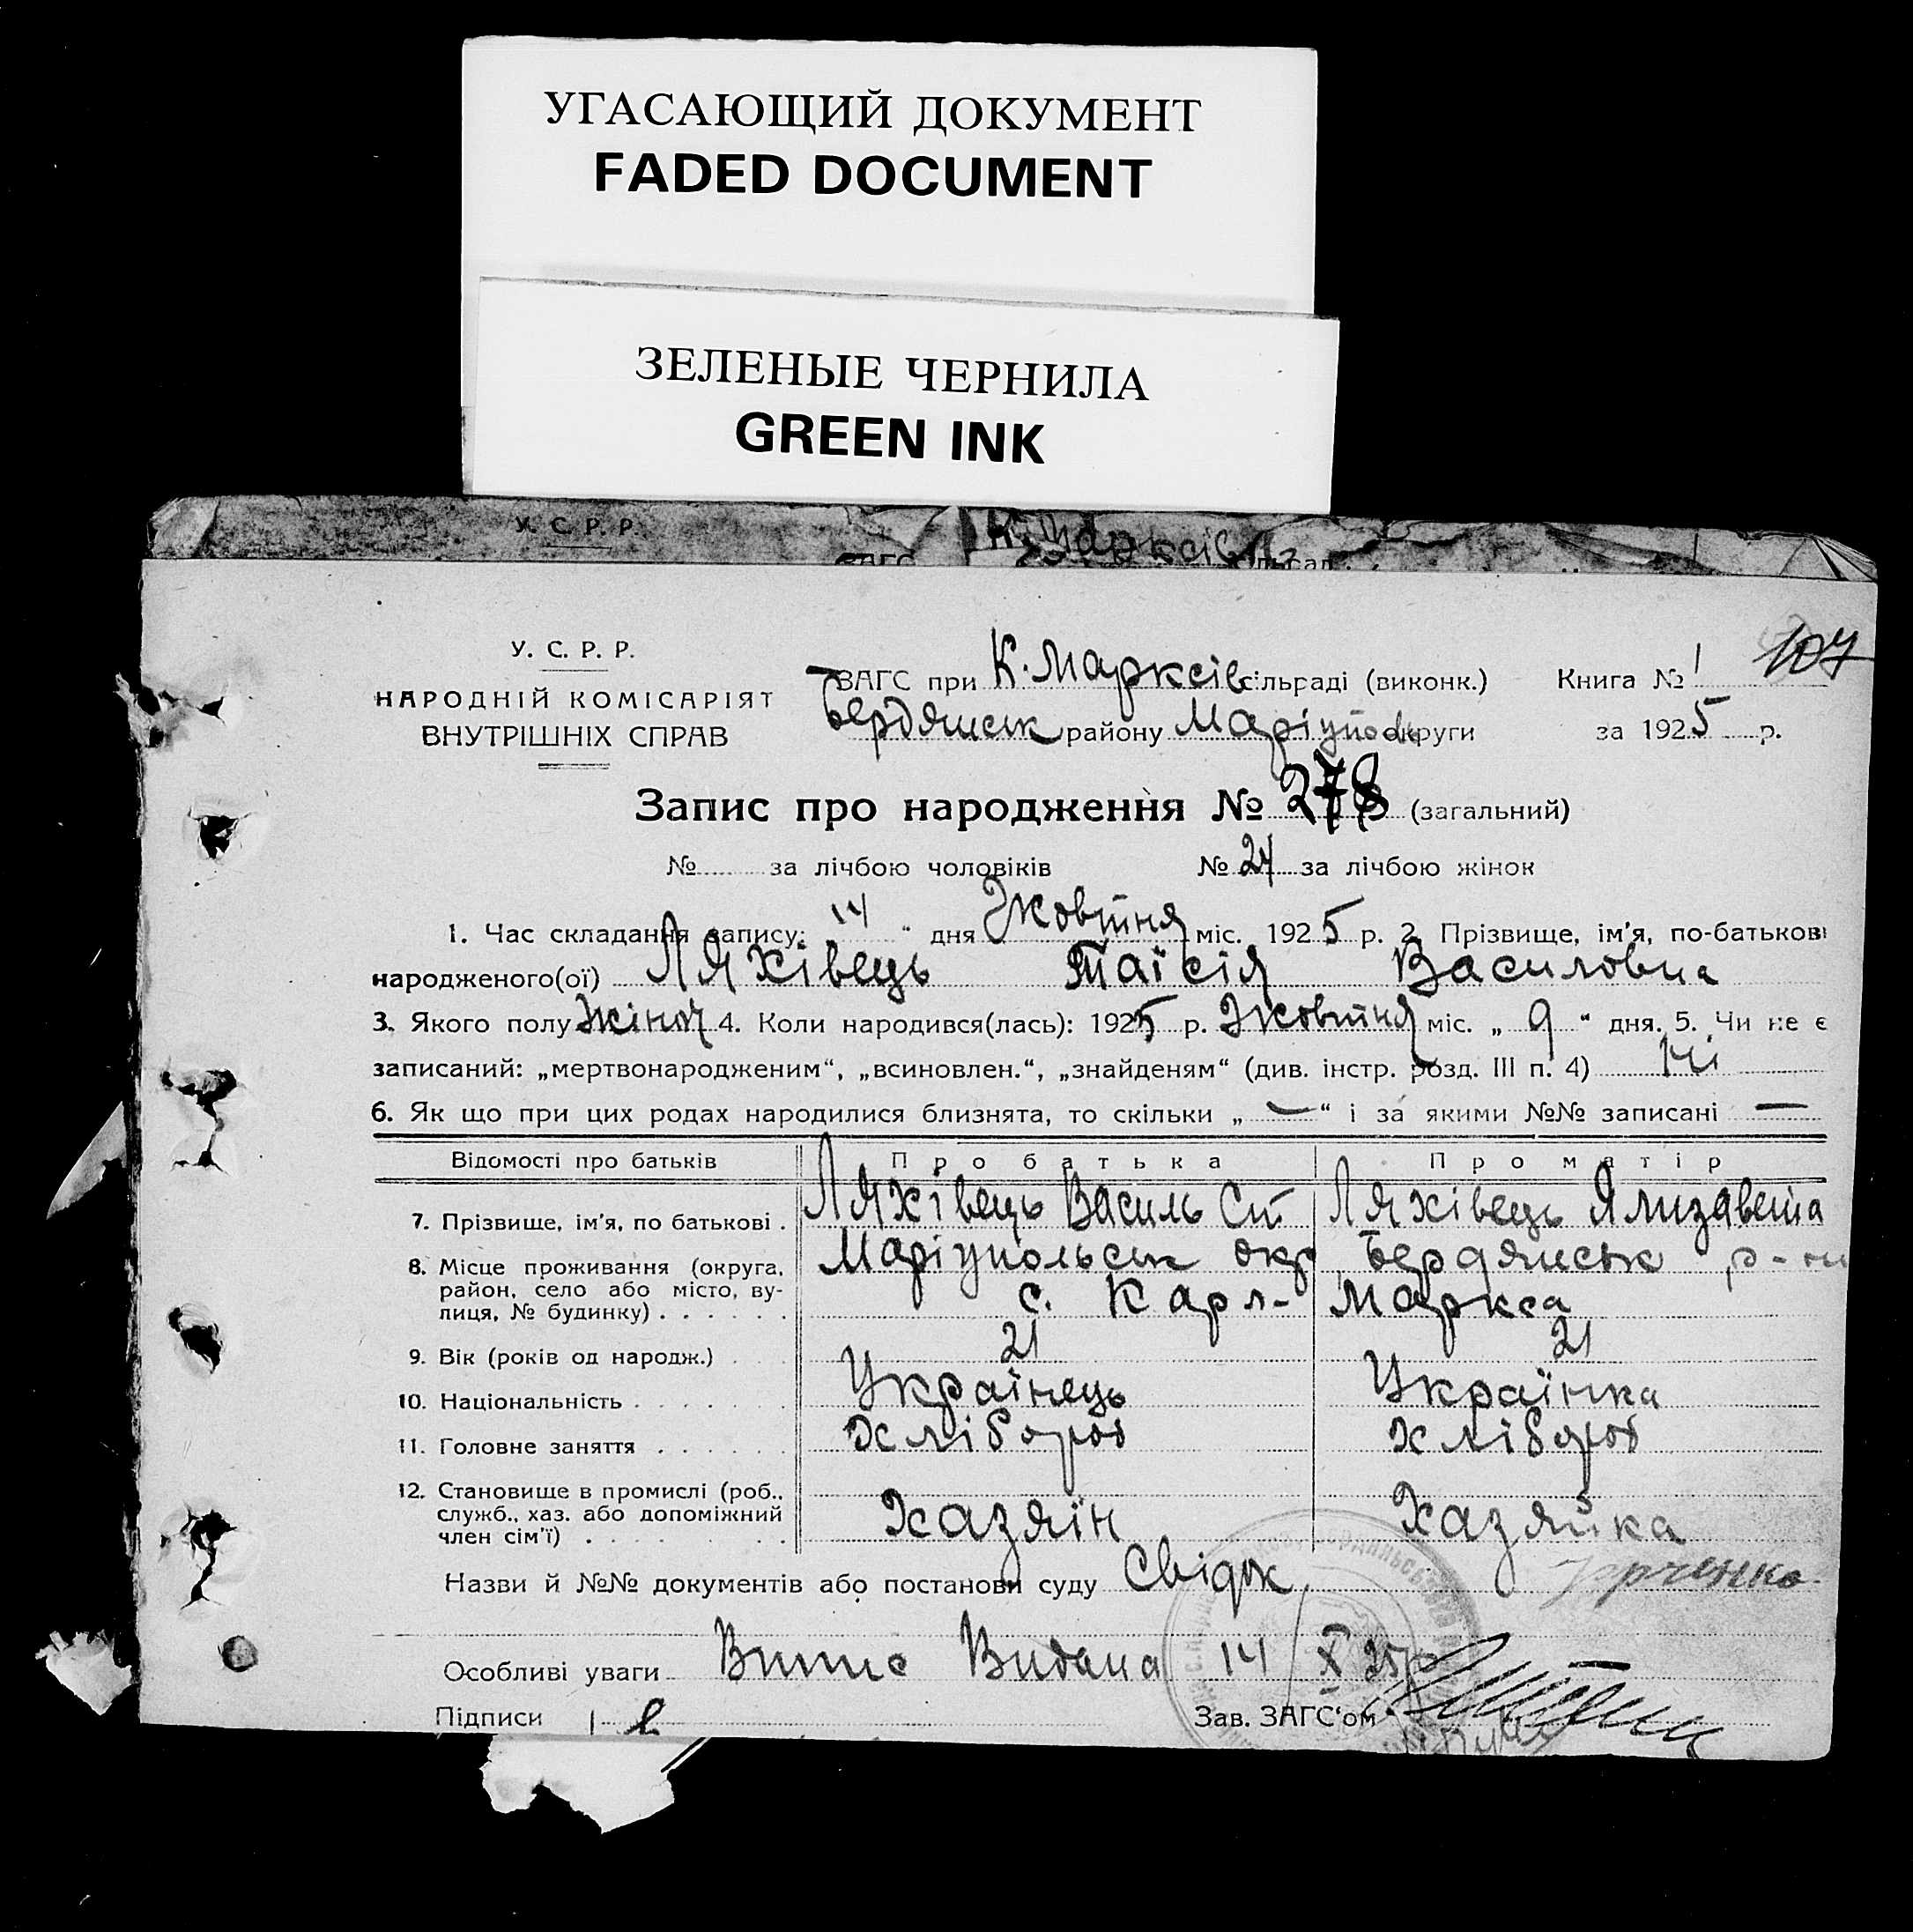 УГАСАЮЩИЙ ДОКУМЕНТ
FADED DOCUMENT
ЗЕЛЕНЫЕ ЧЕРНИЛА
GREEN INK
У. С. Р. Р.
К. Марксів
ЗАГС
У. С. Р. Р.
НАРОДНІЙ КОМІСАРІЯТ
ВНУТРІШНІХ СПРАВ
ЗАГС при К. Марксів сільраді (виконк.) Книга № 1 107
Бердянськ району Маріупольськ округи за 1925 р.
Запис про народження № 278 (загальний)
№ за лічбою чоловіків № 24 за лічбою жінок
1. Час складання запису: 14 " дня Жовтня міс. 1925 р. 2. Прізвище, ім'я, по-батькові
народженого(ої) Ляхівець Таїсія Василовна
3. Якого полу жіноч 4. Коли народився(лась): 1925 р. Жовтня міс. „ 9 " дня. 5. Чи не є
записаний: „мертвонародженим", „всиновлен.", „знайденям" (див. інстр. розд. III п. 4) Ні
6. Як що при цих родах народилися близнята, то скільки „ — " і за якими №№ записані —
Відомості про батьків Про батька Про матір
7. Прізвище, ім'я, по батькові . Ляхівець Василь Ст Ляхівець Ялизавета
8. Місце проживання (округа, район, село або місто, вулиця, № будинку) . . . . . . Маріупольськ окр Бердянськ р-ни
с. Карл- Маркса
9. Вік (років од народж.) . . . 21 21
10. Національність . . . . . . . Українець Українка
11. Головне заняття . . . . . . Хлібороб Хлібороб
12. Становище в промислі (роб., служб., хаз. або допоміжний член сім'ї) . . . . . . Хазяїн Хазяйка
Назви й №№ документів або постанови суду Свідок
Особливі уваги Випис Видана 14/X 25р
Підписи Зав. ЗАГС'ом